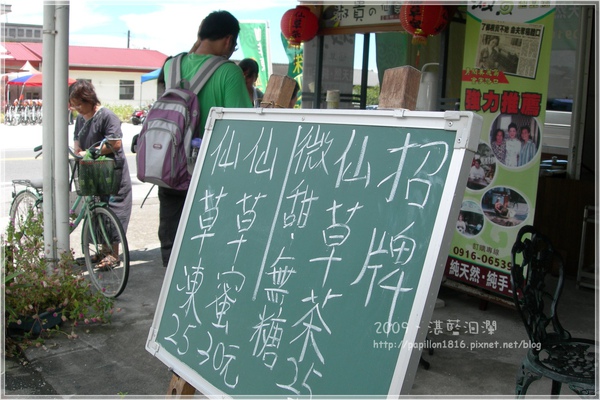 招牌
仙草茶25
微甜·無糖
仙草蜜30元
仙草凍25
強力推薦
0916-06539
純天然.純手
2009.湛藍洄瀾
http://papillon1816.pixnet.net/blog